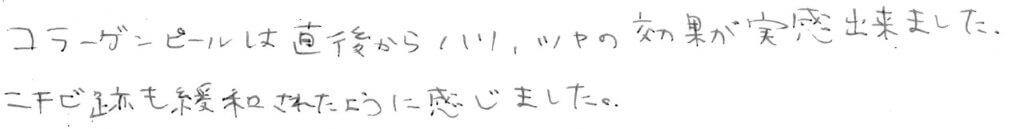 コラーゲンピールは直後からハリ,ツヤの効果が実感出来ました.
ニキビ跡も緩和されたように感じました。